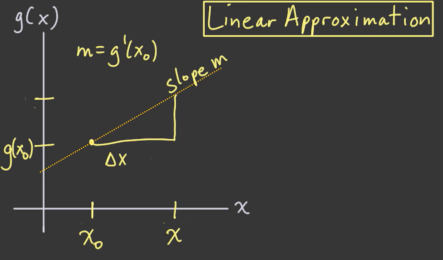 g(x)
Linear Approximation
m=g'(x₀)
slope m
g(x₀)
Δx
x
x₀
x